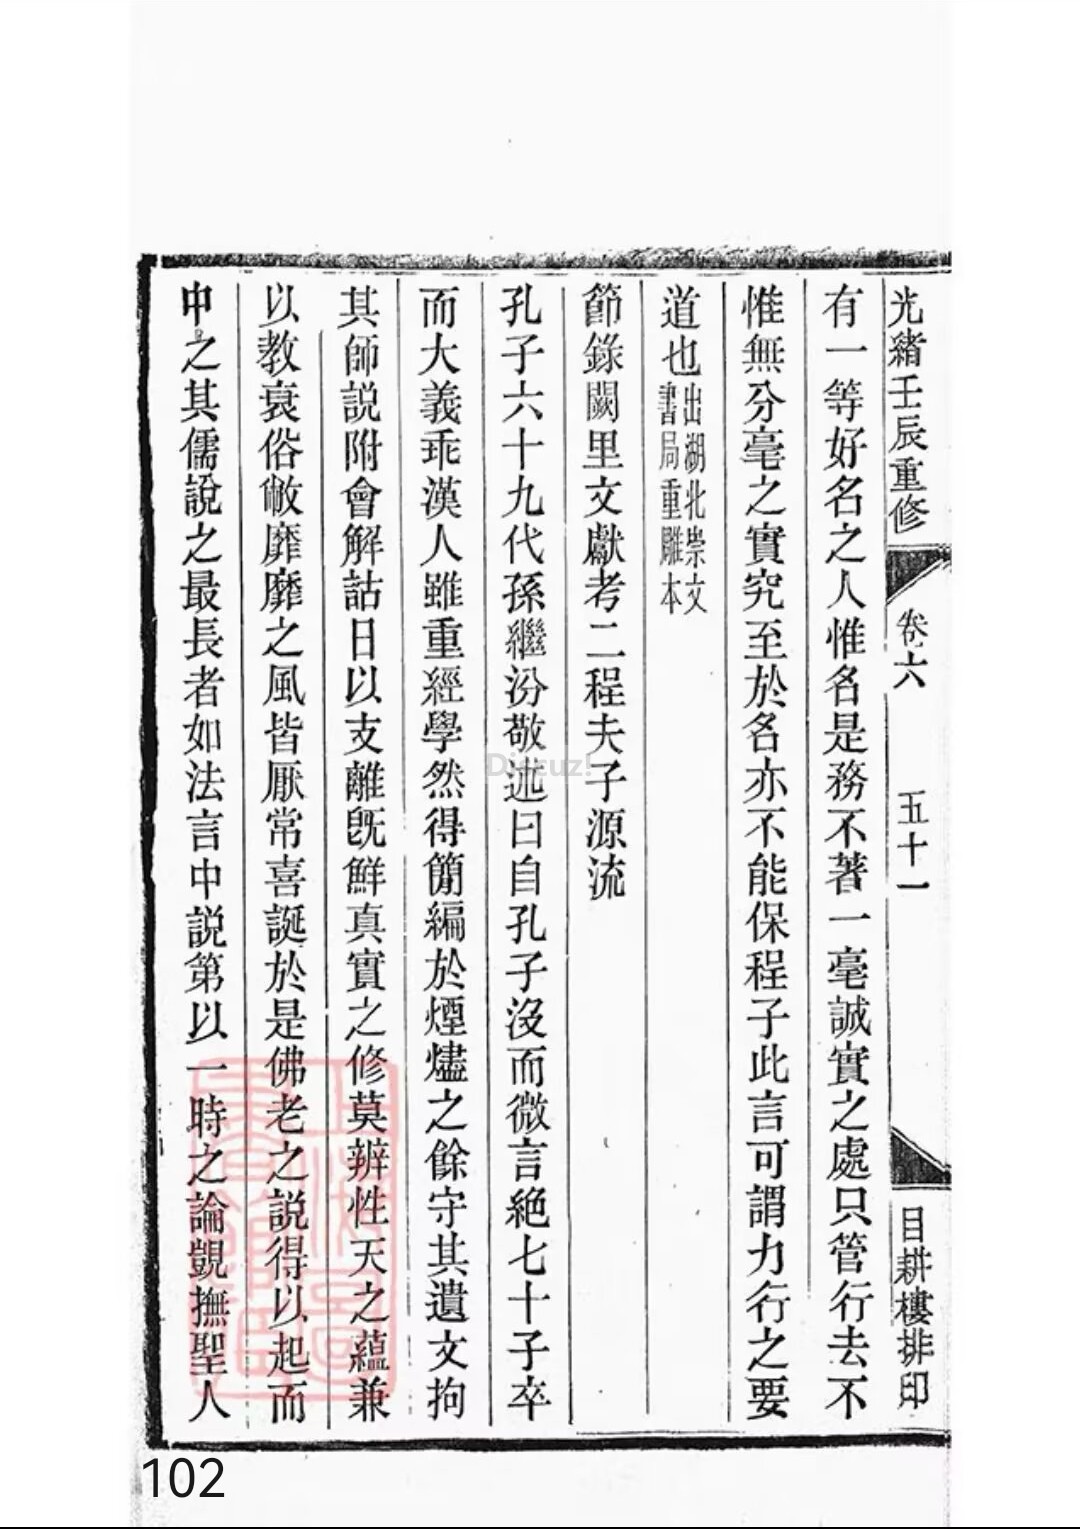 光緒壬辰重修 卷六 五十一 目耕樓排印
有一等好名之人惟名是務不著一毫誠實之處只管行去不
惟無分毫之實究至於名亦不能保程子此言可謂力行之要
道也出湖北崇文書局重雕本
節錄闕里文獻考二程夫子源流
孔子六十九代孫繼汾敬述曰自孔子沒而微言絕七十子卒
而大義乖漢人雖重經學然得簡編於煙燼之餘守其遺文拘
其師說附會解詁日以支離旣鮮真實之修莫辨性天之蘊兼
以教衰俗敝靡靡之風皆厭常喜誕於是佛老之說得以起而
中之其儒說之最長者如法言中說第以一時之論覬撫聖人
Discuz!
102